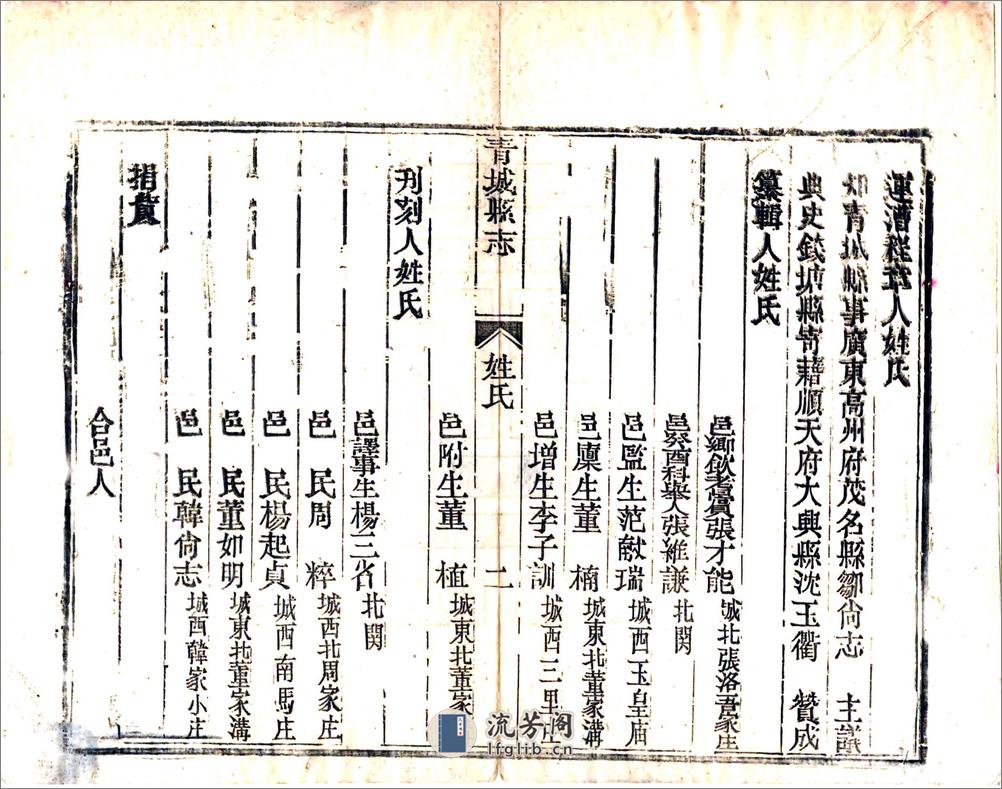 運漕程章人姓氏
知青城縣事廣東高州府茂名縣鄒尙志 主議
典史錢塘縣寄藉順天府大興縣沈玉衢 贊成
纂輯人姓氏
邑鄉飲耆賓張才能 城北張洛吾家庄
邑癸酉科舉人張維謙 北関
邑監生范献瑞 城西玉皇庙
邑廪生董 楠 城東北董家溝
邑增生李子訓 城西三里
青城縣志
姓氏
二
邑附生董 植 城東北董家
刋刻人姓氏
邑譯事生楊三省 北関
邑 民周 粹 城西北周家庄
邑 民楊起貞 城西南馬庄
邑 民董如明 城東北董家溝
邑 民韓尙志 城西韓家小庄
捐貲
合邑人
流芳阁
lfglib.cn